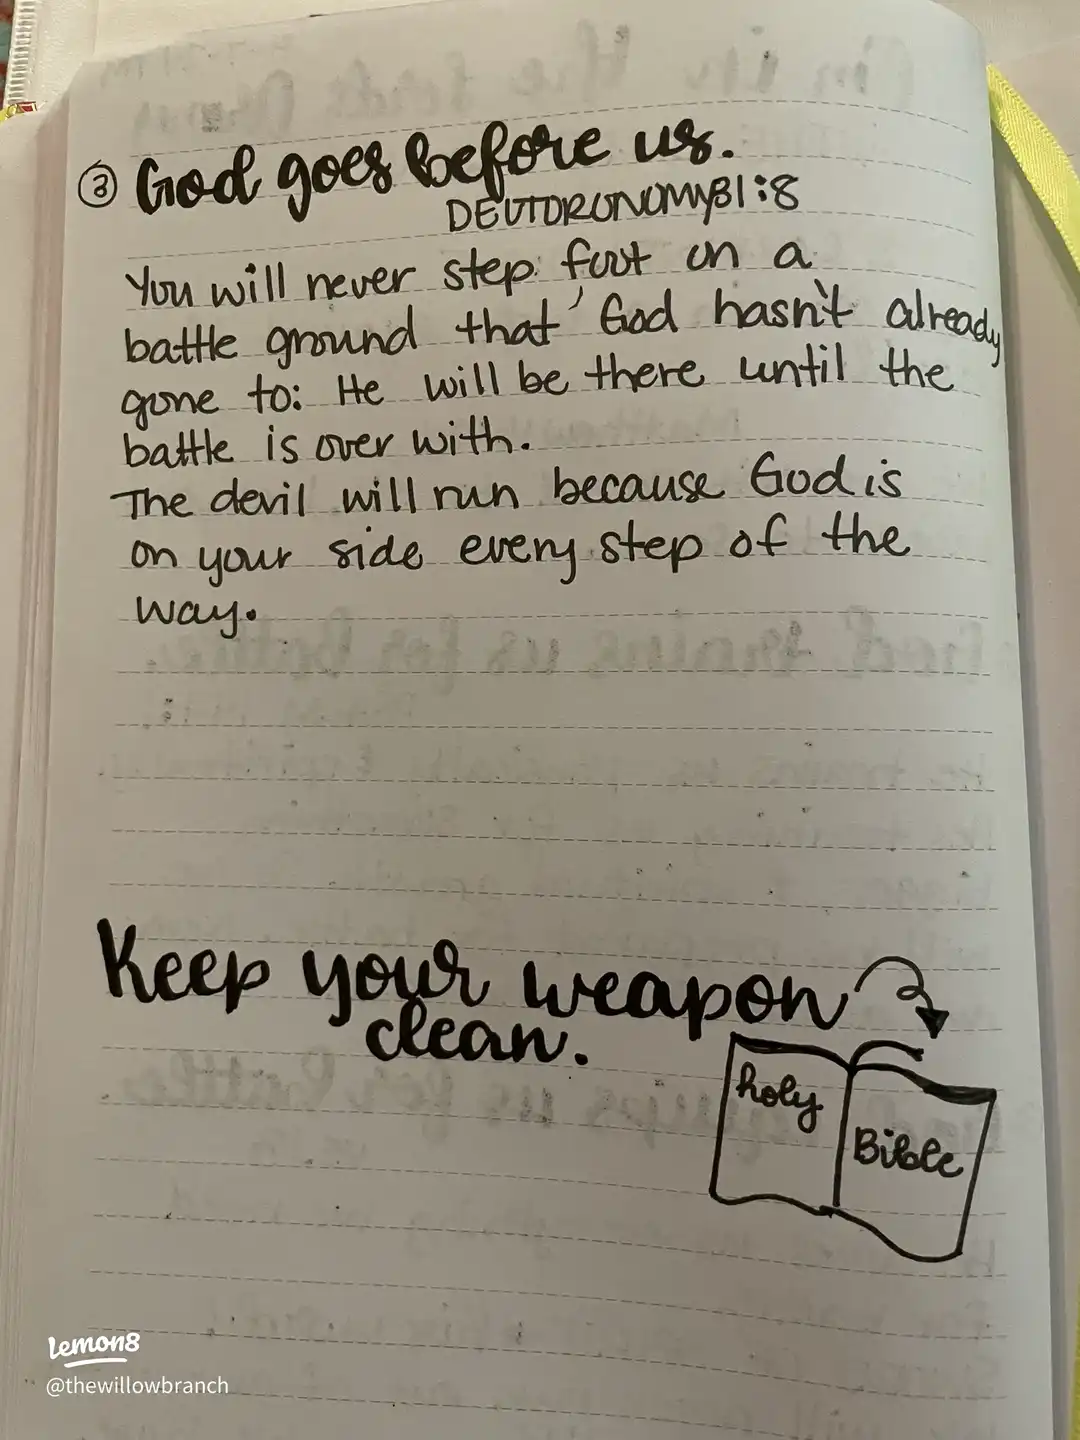 ③ God goes before us.
DEUTORONOMY31:8
You will never step foot on a
battle ground that God hasn't already
gone to: He will be there until the
battle is over with.
The devil will run because God is
on your side every step of the
way.
Keep your weapon
clean.
holy
Bible
Lemon8
@thewillowbranch